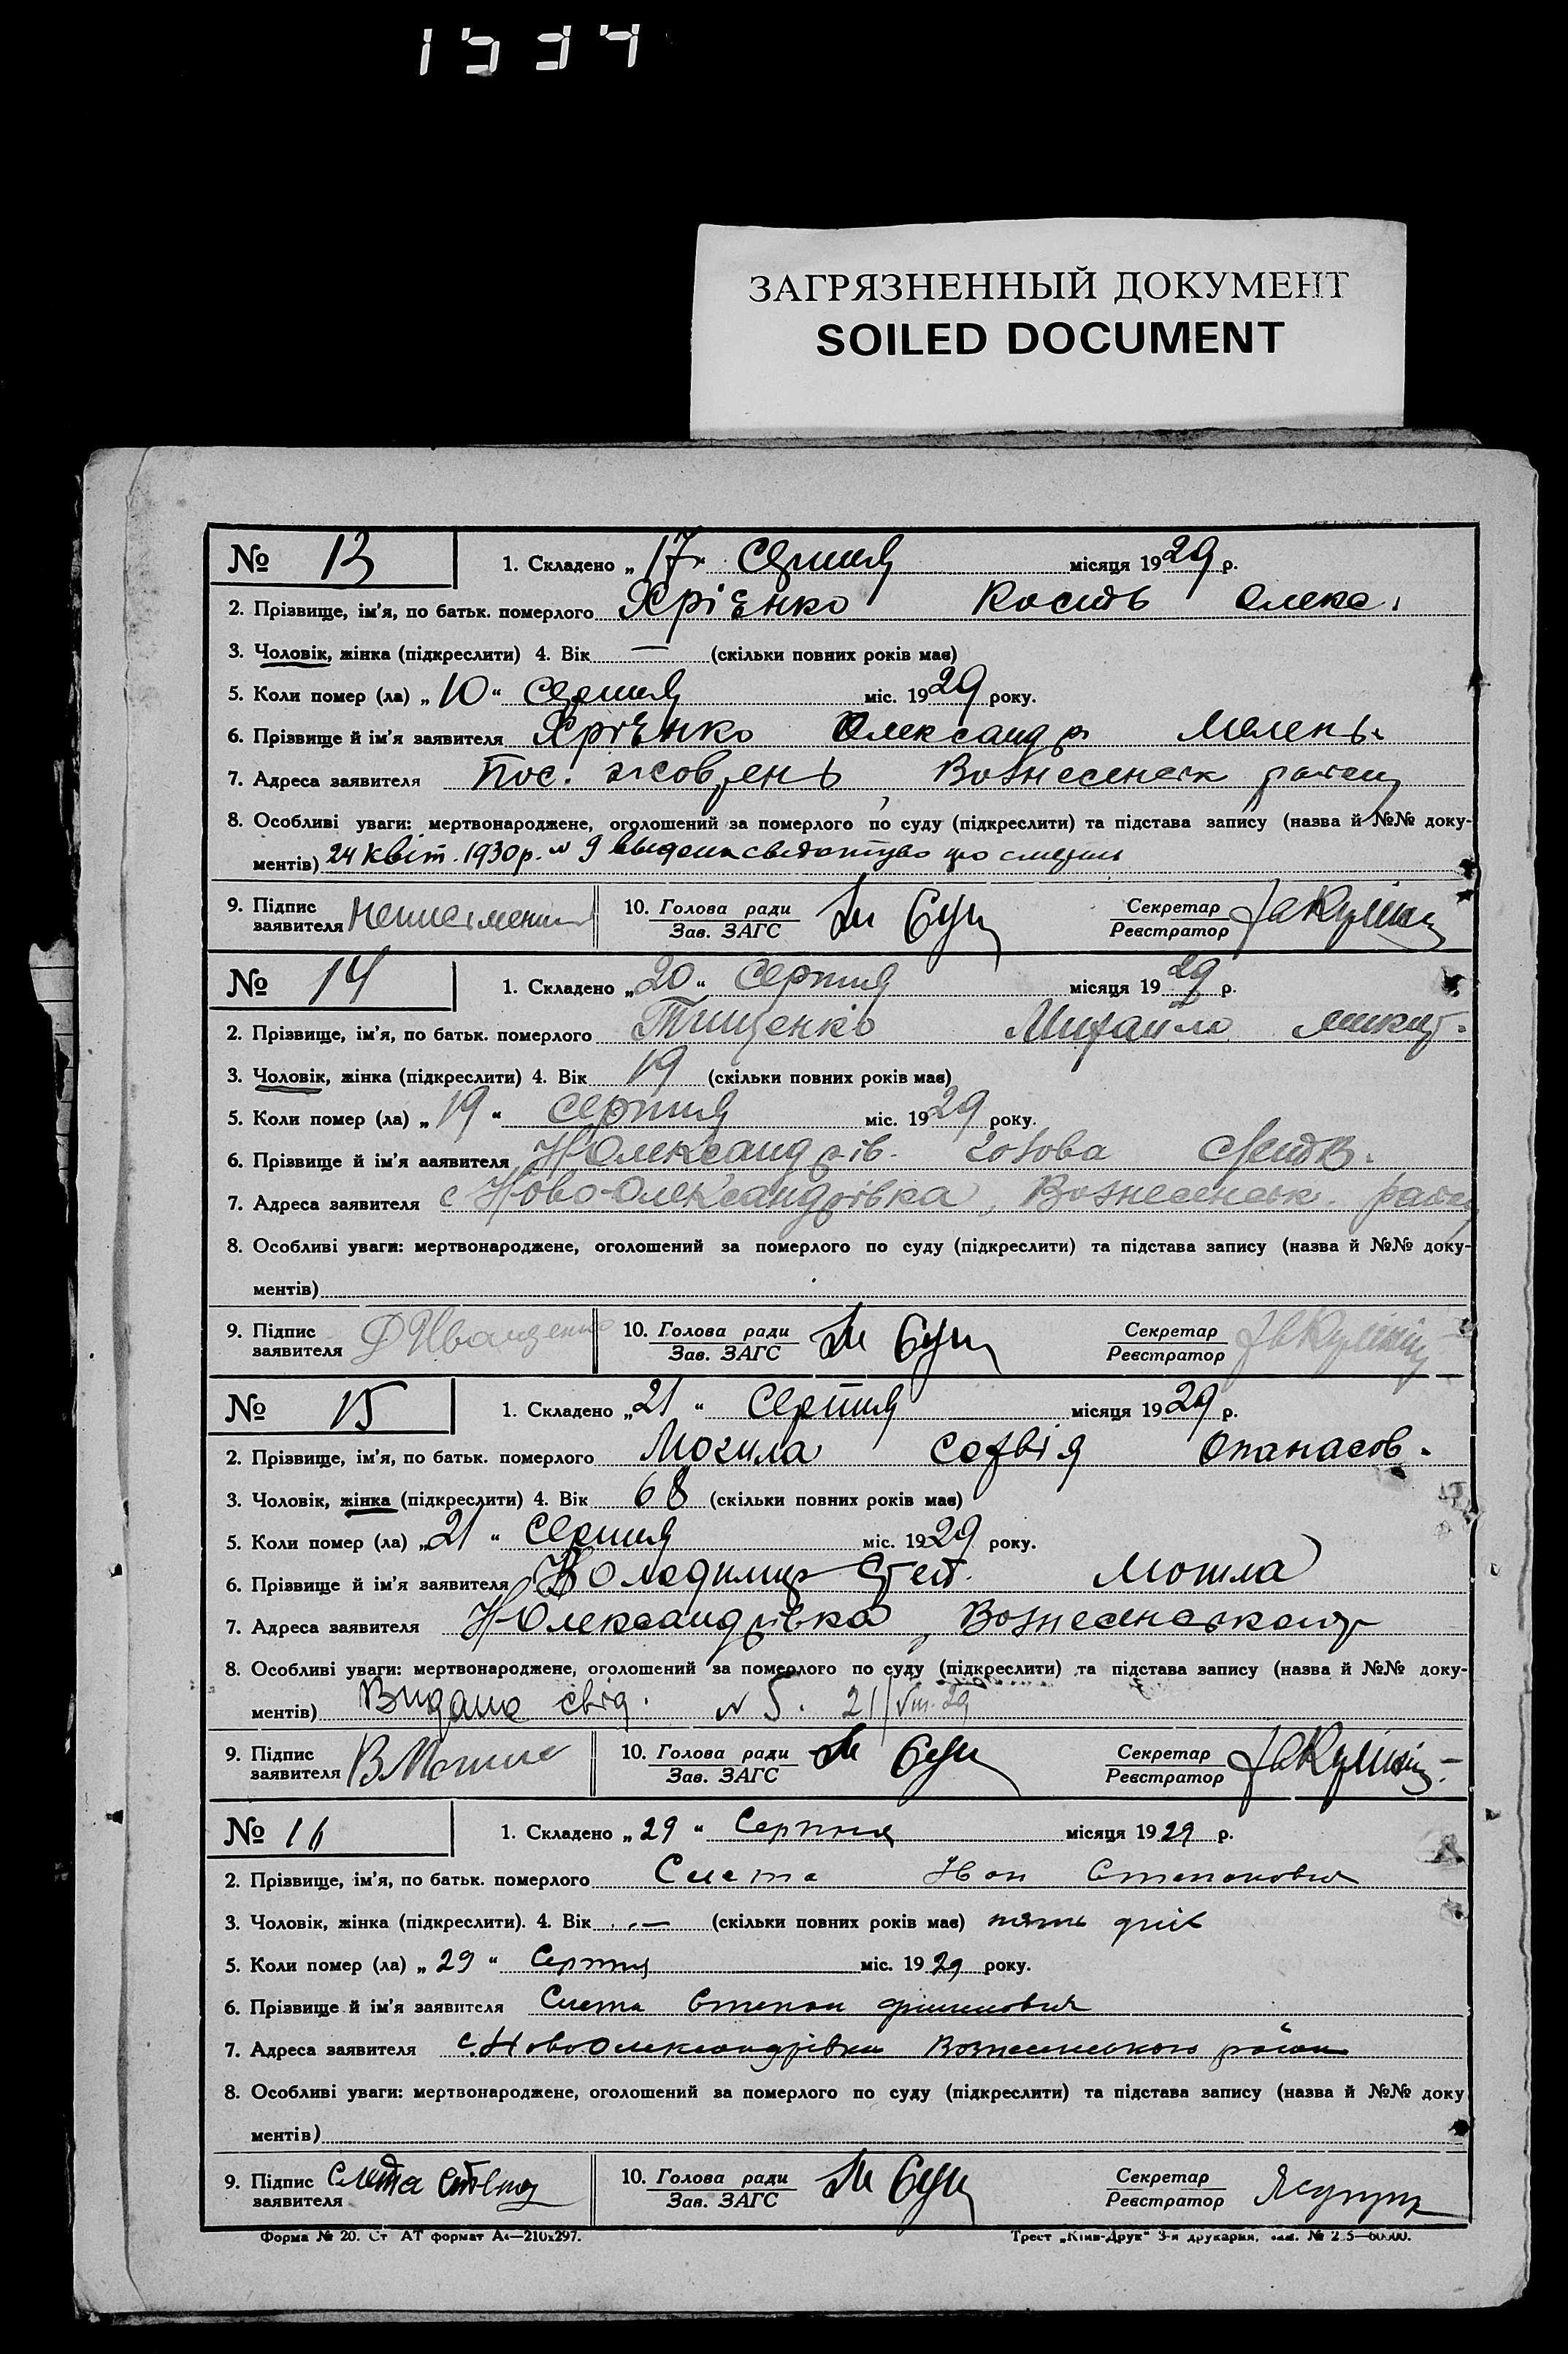 1534
ЗАГРЯЗНЕННЫЙ ДОКУМЕНТ
SOILED DOCUMENT
№ 13 1. Складено „17" серпня місяця 1929 р.
2. Прізвище, ім'я, по батьк. померлого Кость Олекс.
3. Чоловік, жінка (підкреслити) 4. Вік — (скільки повних років має)
5. Коли помер (ла) „10" серпня міс. 1929 року.
6. Прізвище й ім'я заявителя Олександр
7. Адреса заявителя Пос. Жовтень, Вознесенськ району
8. Особливі уваги: мертвонароджене, оголошений за померлого по суду (підкреслити) та підстава запису (назва й №№ доку-
ментів) 24 квіт. 1930 р. № 9 видана свідоцтво про смерть
9. Підпис заявителя неписьменний 10. Голова ради Зав. ЗАГС Секретар Реєстратор
№ 14 1. Складено „20" серпня місяця 1929 р.
2. Прізвище, ім'я, по батьк. померлого Тищенко Михайло Микит.
3. Чоловік, жінка (підкреслити) 4. Вік 19 (скільки повних років має)
5. Коли помер (ла) „19" серпня міс. 1929 року.
6. Прізвище й ім'я заявителя Н Олександрів. голова
7. Адреса заявителя с Ново-Олександрівка, Вознесенськ. району
8. Особливі уваги: мертвонароджене, оголошений за померлого по суду (підкреслити) та підстава запису (назва й №№ доку-
ментів)
9. Підпис заявителя Д Иващенко 10. Голова ради Зав. ЗАГС Секретар Реєстратор
№ 15 1. Складено „21" серпня місяця 1929 р.
2. Прізвище, ім'я, по батьк. померлого Могила Софія Опанасов.
3. Чоловік, жінка (підкреслити) 4. Вік 68 (скільки повних років має)
5. Коли помер (ла) „21" серпня міс. 1929 року.
6. Прізвище й ім'я заявителя Володимир Степ. Могила
7. Адреса заявителя Н Олександрівка, Вознесенського р
8. Особливі уваги: мертвонароджене, оголошений за померлого по суду (підкреслити) та підстава запису (назва й №№ доку-
ментів) Видана свід. № 5. 21/VIII-29
9. Підпис заявителя В Могила 10. Голова ради Зав. ЗАГС Секретар Реєстратор
№ 16 1. Складено „29" Серпня місяця 1929 р.
2. Прізвище, ім'я, по батьк. померлого Смета Степанович
3. Чоловік, жінка (підкреслити). 4. Вік — (скільки повних років має) пять днів
5. Коли помер (ла) „29" Серпня міс. 1929 року.
6. Прізвище й ім'я заявителя Смета Степан
7. Адреса заявителя с. НовоОлександрівки Вознесенського район
8. Особливі уваги: мертвонароджене, оголошений за померлого по суду (підкреслити) та підстава запису (назва й №№ доку
ментів)
9. Підпис заявителя Смета Степан 10. Голова ради Зав. ЗАГС Секретар Реєстратор
Форма № 20. Ст АТ формат А4—210х297. Трест „Київ-Друк" 3-я друкарня,